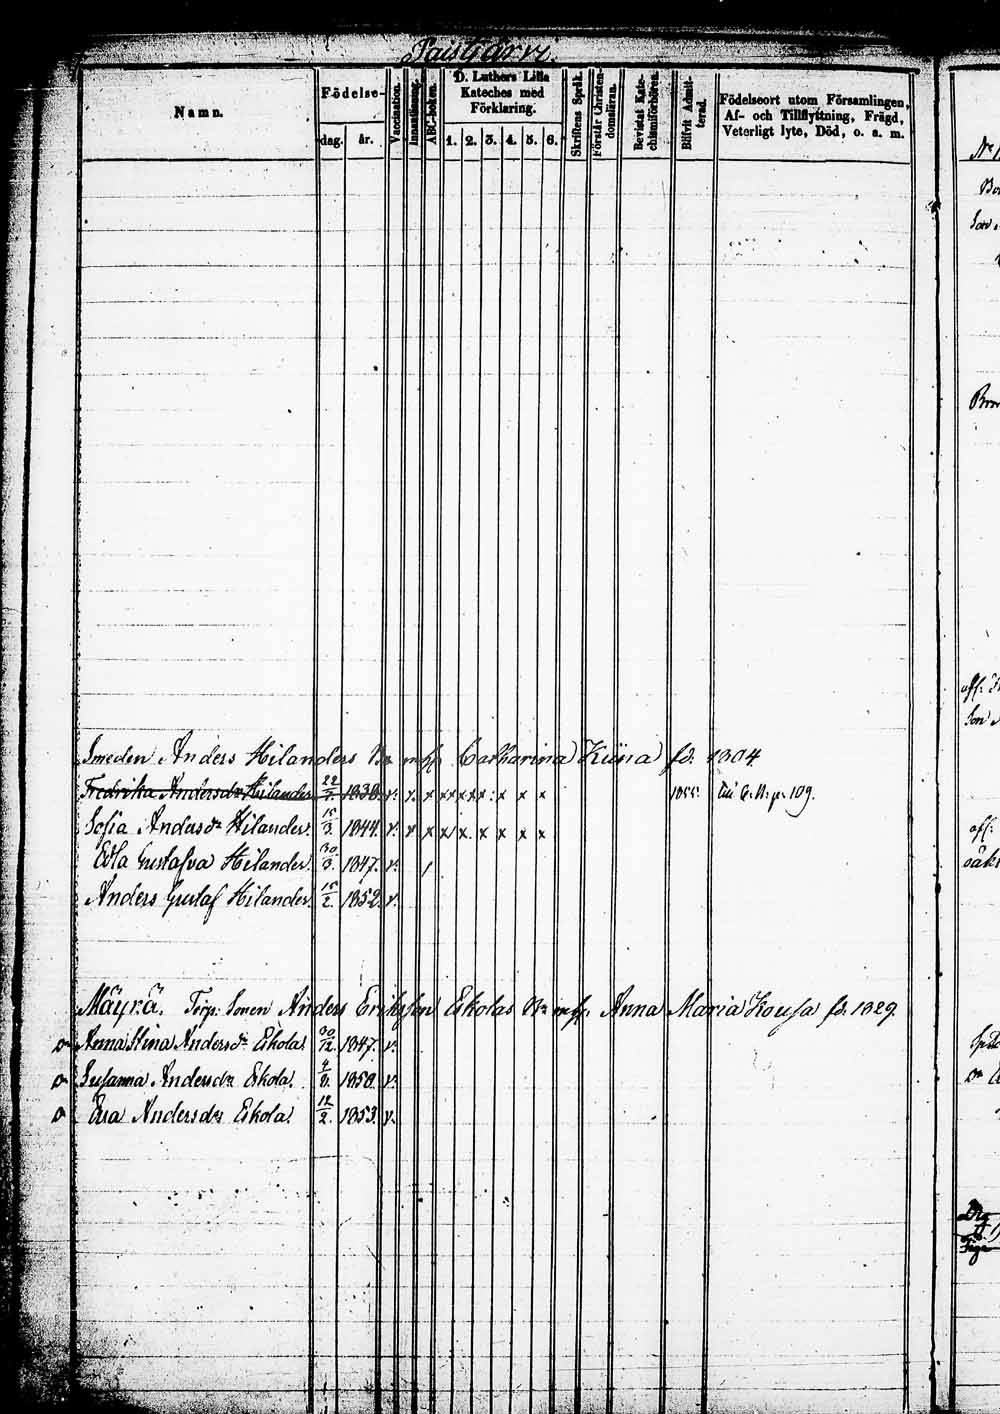 Namn.
Födelse-
dag.
år.
Vaccination.
Innanläsning.
ABC-boken.
D. Luthers Lilla
Kateches med
Förklaring.
1. 2. 3. 4. 5. 6.
Skriftens Språk.
Förstår Christen-
domsläran.
Bevistat Kate-
chismiförhören.
Blifvit Admit-
terad.
Födelseort utom Församlingen,
Af- och Tillflyttning, Frägd,
Veterligt lyte, Död, o. a. m.
Smeden Anders Hilanders Bn m hu Catharina Kiina fd. 1804.
Fredrika Andersdr Hilander 22/7. 1838. v. x x x x x x x x x x 1855. till p. 109.
Sofia Andersdr Hilander. 15/3. 1844. v. x x x x x x x x x
Edla Gustafva Hilander. 30/3. 1847. v. /
Anders Gustaf Hilander. 15/2. 1852. v.
Mäyrä. Torp. Sonen Anders Eriksson Eskolas Bn m hu Anna Maria Kousa fd. 1829.
Anna Stina Andersdr Eskola 30/12. 1847. v.
Susanna Andersdr Eskola. 4/8. 1850. v.
Eva Andersdr Eskola. 12/2. 1853. v.
Son